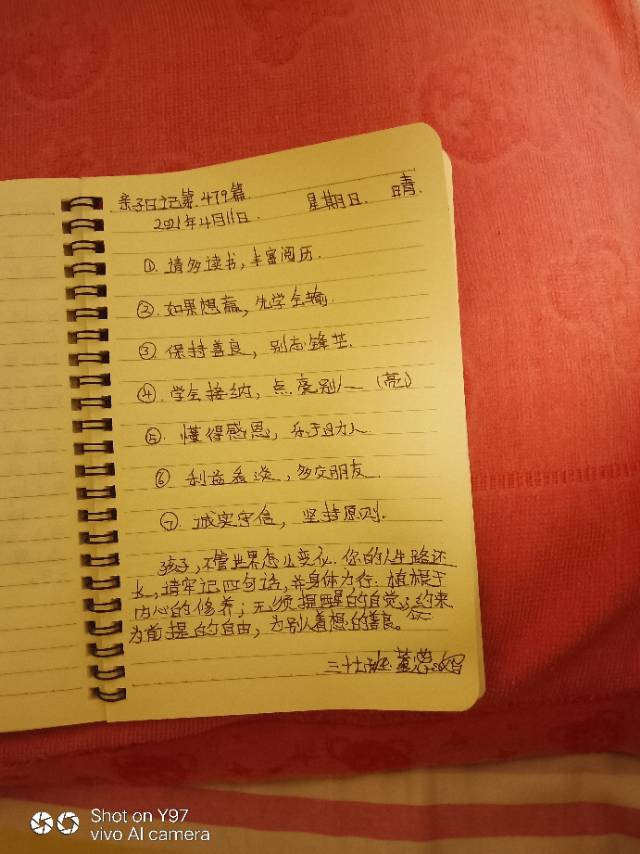 亲子日记第479篇 星期日 晴.
2021年4月11日.
①.请多读书,丰富阅历.
②.如果想赢,先学会输.
③.保持善良,别忘锋芒.
④.学会接纳,点亮别人 (亮)
⑤.懂得感恩,乐于助人
⑥ 利益看淡,多交朋友.
⑦.诚实守信,坚持原则.
孩子,不管世界怎么变化.你的人生路还
长,请牢记四句话,并身体力行.植根于
内心的修养;无须提醒的自觉;以约束
为前提的自由,为别人着想的善良。
三十七班
Shot on Y97
vivo AI camera